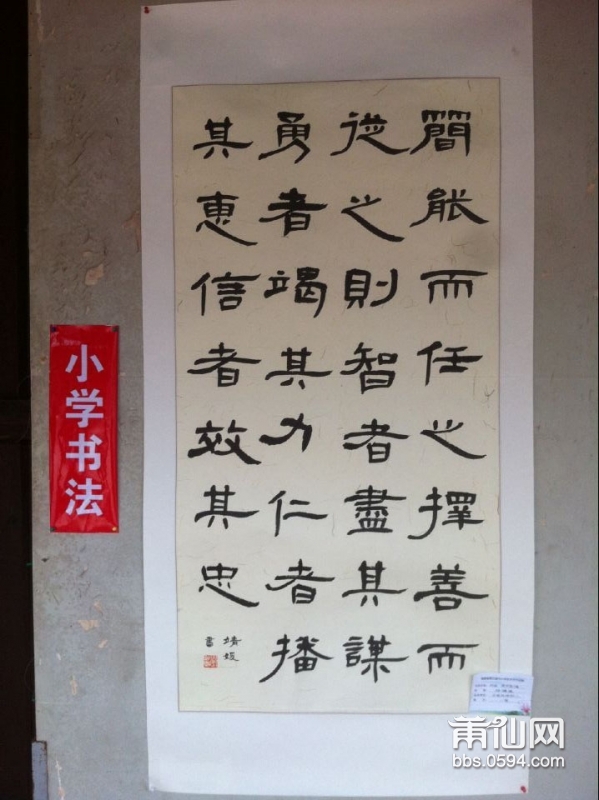 簡能而任之擇善而
從之則智者盡其謀
勇者竭其力仁者播
其惠信者效其忠
書
小学书法
莆仙网
bbs.0594.com